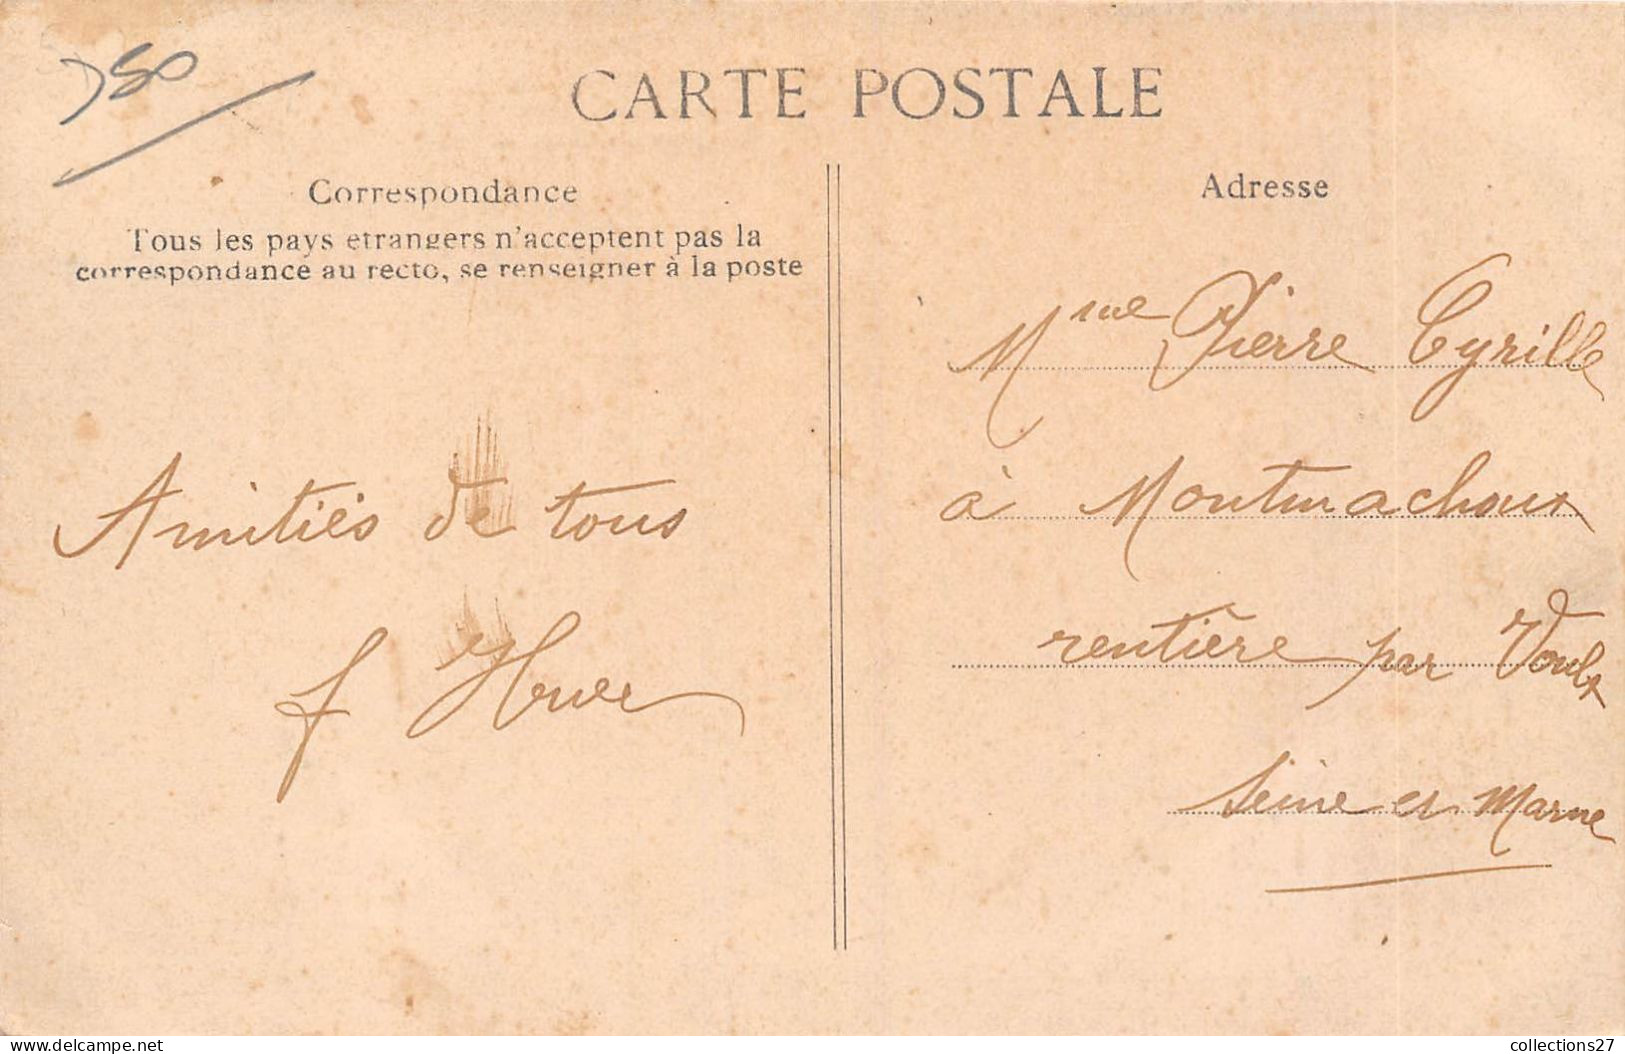 350
CARTE POSTALE
Correspondance
Tous les pays étrangers n'acceptent pas la
correspondance au recto, se renseigner à la poste
Amitiés de tous
f Huré
Adresse
Mme Pierre Cyrille
à Montmachoux
rentière par Voulx
Seine et Marne
www.delcampe.net
collections27